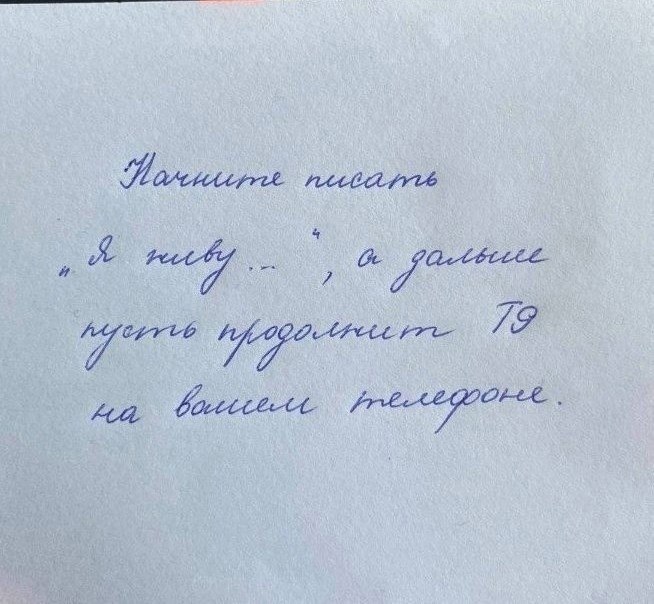 Начните писать
„Я живу...“, а дальше
пусть продолжит Т9
на вашем телефоне.